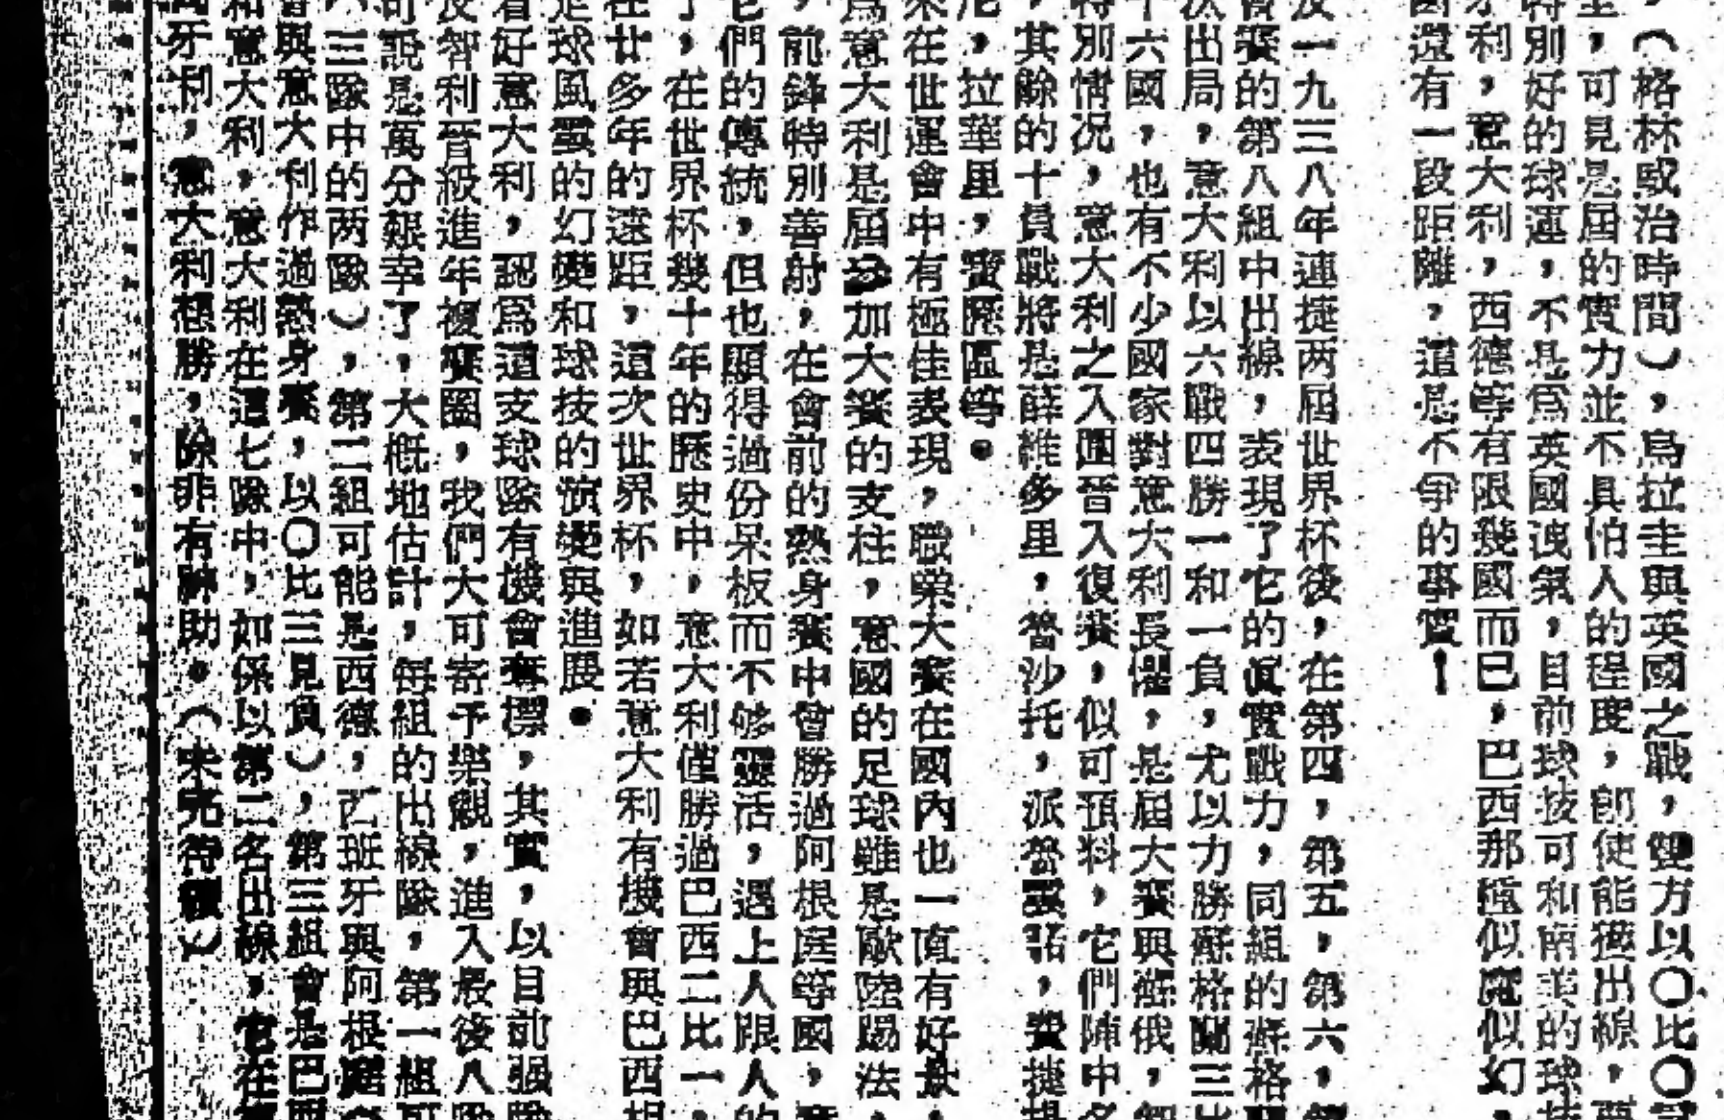 ，（格林威治時間），烏拉圭與英國之戰，雙方以〇比〇
，可見是屆的實力並不具怕人的程度，卽使能獲出線，
特別好的球運，不是爲英國洩氣，目前球技可和南美的球
牙利，意大利，西德等有限幾國而已，巴西那種似魔似幻，
還有一段距離，這是不爭的事實！
一九三八年連捷两屆世界杯後，在第四，第五，第六，
賽的第八組中出線，表現了它的眞實戰力，同組的蘇格
汰出局，意大利以六戰四勝一和一負，尤以力勝蘇格蘭三比
十六國，也有不少國家對意大利長懼，是屆大賽與蘇俄，
特別情况，意大利之入圍晉入復賽，似可預料，它們陣中
，其餘的十員戰將是薛維多里，魯沙托，派魯，費捷
尼，拉華里，賓區等。
來在世運會中有極佳表現，職業大賽在國內也一直有好景，
爲意大利是屆參加大賽的支柱，意國的足球雖是歐陸踢法，
，前鋒特別善射，在會前的熱身賽中曾勝過阿根庭等國，
它們的傳統，但也顯得過份呆板而不够靈活，遇上人限人的
了，在世界杯幾十年的歷史中，意大利僅勝過巴西二比一，
在廿多年的遠距，這次世界杯，如若意大利有機會與巴西
足球風雲的幻變和球技的演變與進展。
看好意大利，認爲這支球隊有機會奪標，其實，以目前强
及智利晉級進年複賽圈，我們大可寄予樂觀，進入最後八
可說是萬分艱幸了，大概地估計，每組的出線隊，第一組
三隊中的两隊），第二組可能是西德，西班牙與阿根庭
與意大利作過熱身賽，以〇比三見負），第三組會是巴西
和意大利，意大利在這七隊中，如係以第二名出線，它在
牙利，意大利想勝，除非有神助。（未完待續）